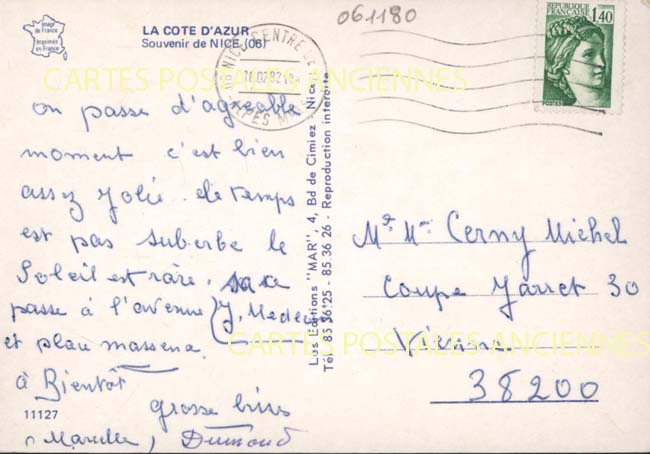 Image
de France
Imprimée
en France
LA COTE D'AZUR
Souvenir de NICE (06)
061180
REPUBLIQUE
FRANÇAISE
1,40
POSTES
NICE CENTRE
07.82
ALPES M
CARTES POSTALES ANCIENNES
on passe d'agreable
moment c'est bien
assez Jolie. le temps
est pas suberbe le
Soleil est rare.
passe à l'avenue J, Medecin
et plau massena
à Bientôt
grosse bises
Dumond
11127
Les Editions "MAR", 4, Bd de Cimiez - Nice
Tél. 85 36 25 - 85 36 26 - Reproduction interdite
Mr Mme Cerny Michel
Coupe Jarret 30
Vienne
38200
CARTES POSTALES ANCIENNES